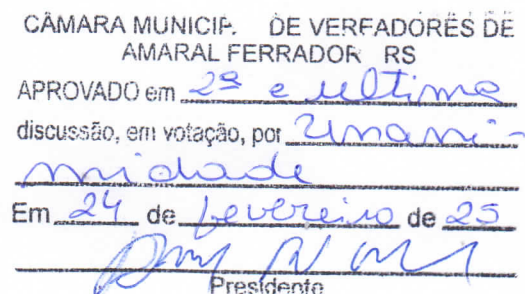 CÂMARA MUNICIP. DE VEREADORES DE
AMARAL FERRADOR RS
APROVADO em 2ª e ultima
discussão, em votação, por Unani-
midade
Em 24 de fevereiro de 25
Presidente